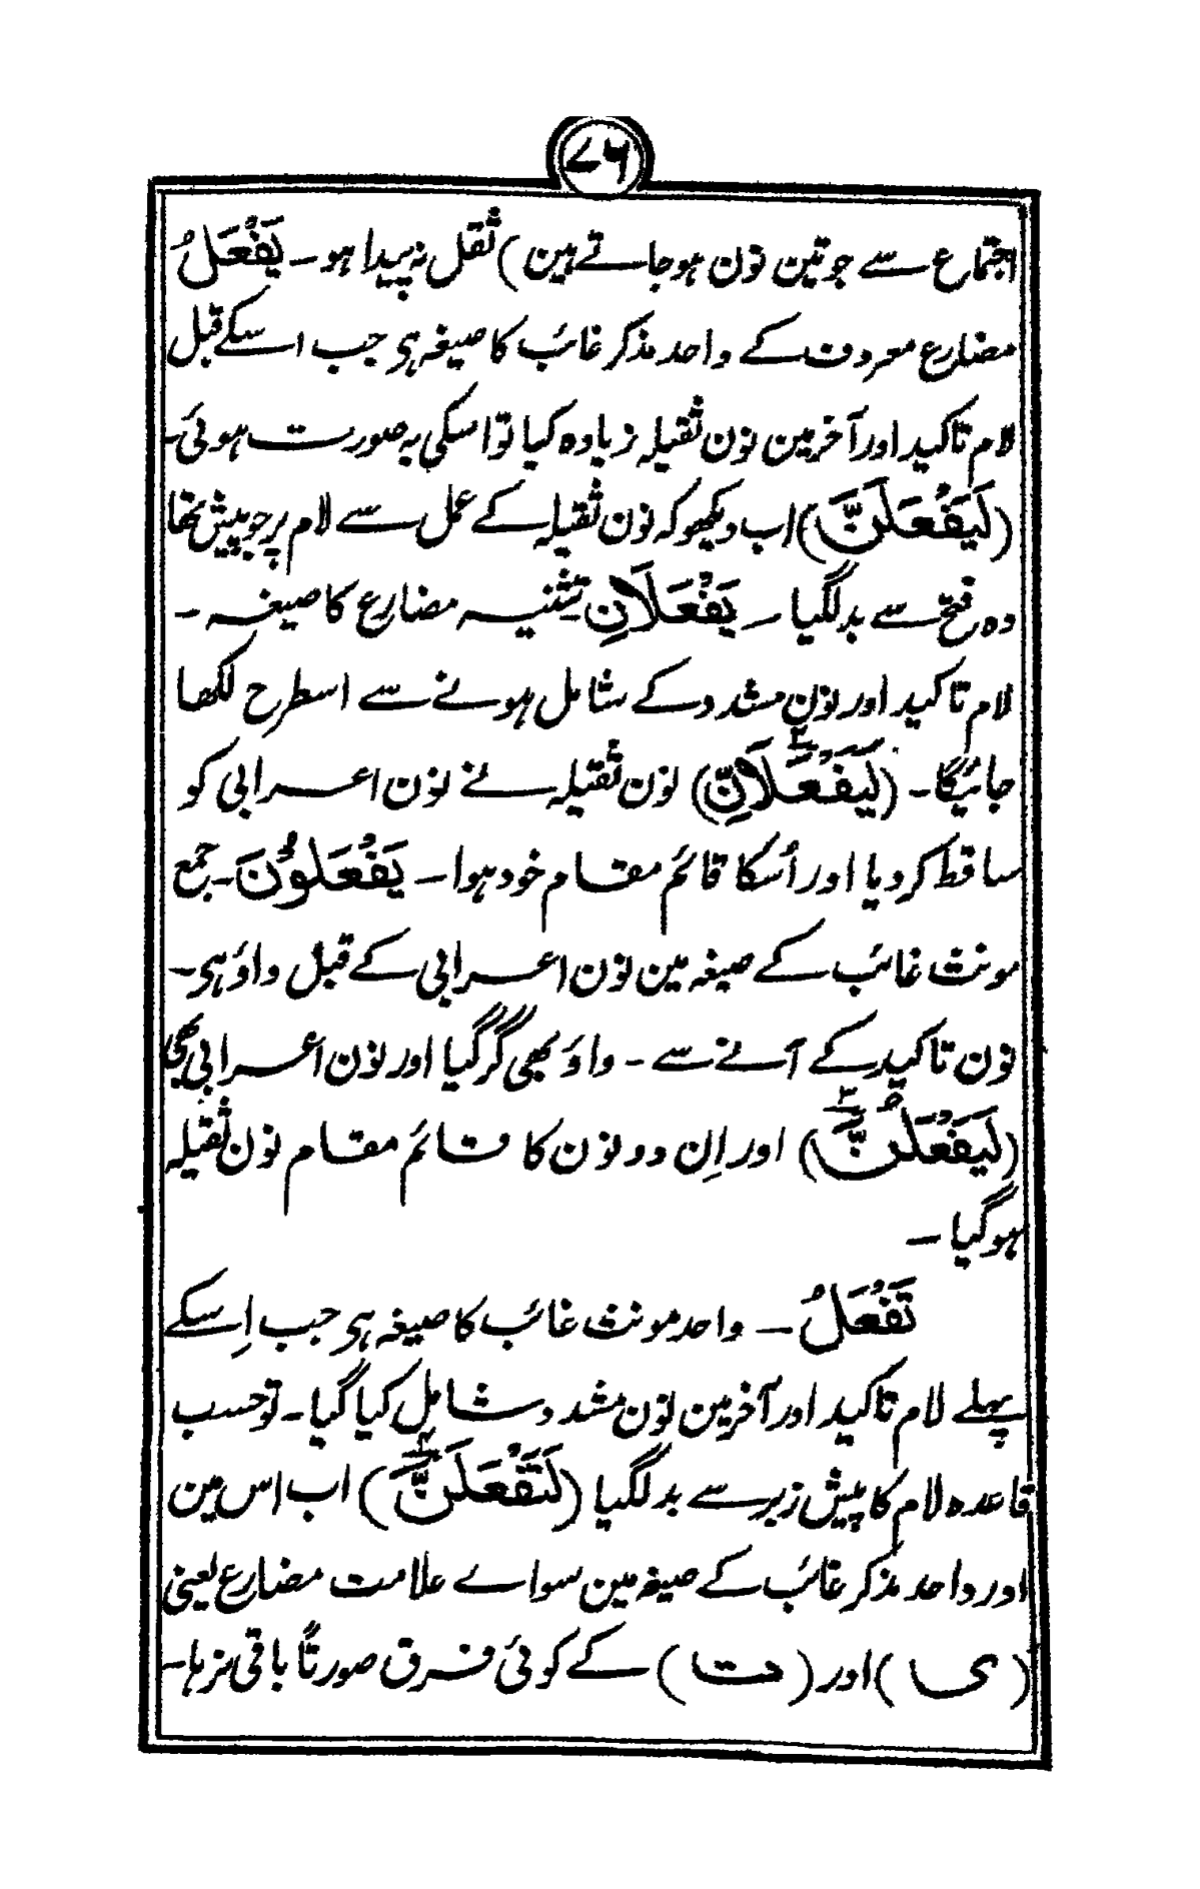 ۷۶
اجتماع سے جو تین نون ہو جاتے ہین) ثقل نہ پیدا ہو۔ یَفْعَلُ
مضارع معروف کے واحد مذکر غائب کا صیغہ ہی جب اسکے قبل
لام تاکید اور آخر مین نون ثقیلہ زیادہ کیا تو اسکی یہ صورت ہوئی۔
(لَیَفْعَلَنَّ) اب دیکھو کہ نون ثقیلہ کے عمل سے لام پر جو پیش تھا
وہ فتح سے بدلگیا۔ یَفْعَلَانِ تثنیہ مضارع کا صیغہ۔
لام تاکید اور نون مشدد کے شامل ہونے سے اسطرح لکھا
جائیگا۔ (لَیَفْعَلَانِّ) نون ثقیلہ نے نون اعرابی کو
ساقط کر دیا اور اُسکا قائم مقام خود ہوا۔ یَفْعَلُوْنَ۔ جمع
مونث غائب کے صیغہ مین نون اعرابی کے قبل واؤ ہی۔
نون تاکید کے آنے سے۔ واؤ بھی گر گیا اور نون اعرابی بھی
(لَیَفْعَلُنَّ) اور اِن دو نون کا قائم مقام نون ثقیلہ
ہوگیا۔
تَفْعَلُ۔ واحد مونث غائب کا صیغہ ہی جب اِسکے
پہلے لام تاکید اور آخر مین نون مشدد شامل کیا گیا۔ تو حسب
قاعدہ لام کا پیش زبر سے بدلگیا (لَتَفْعَلَنَّ) اب اس مین
اور واحد مذکر غائب کے صیغہ مین سواے علامت مضارع یعنی
(یا) اور (ت) کے کوئی فرق صورتًا باقی نرہا۔